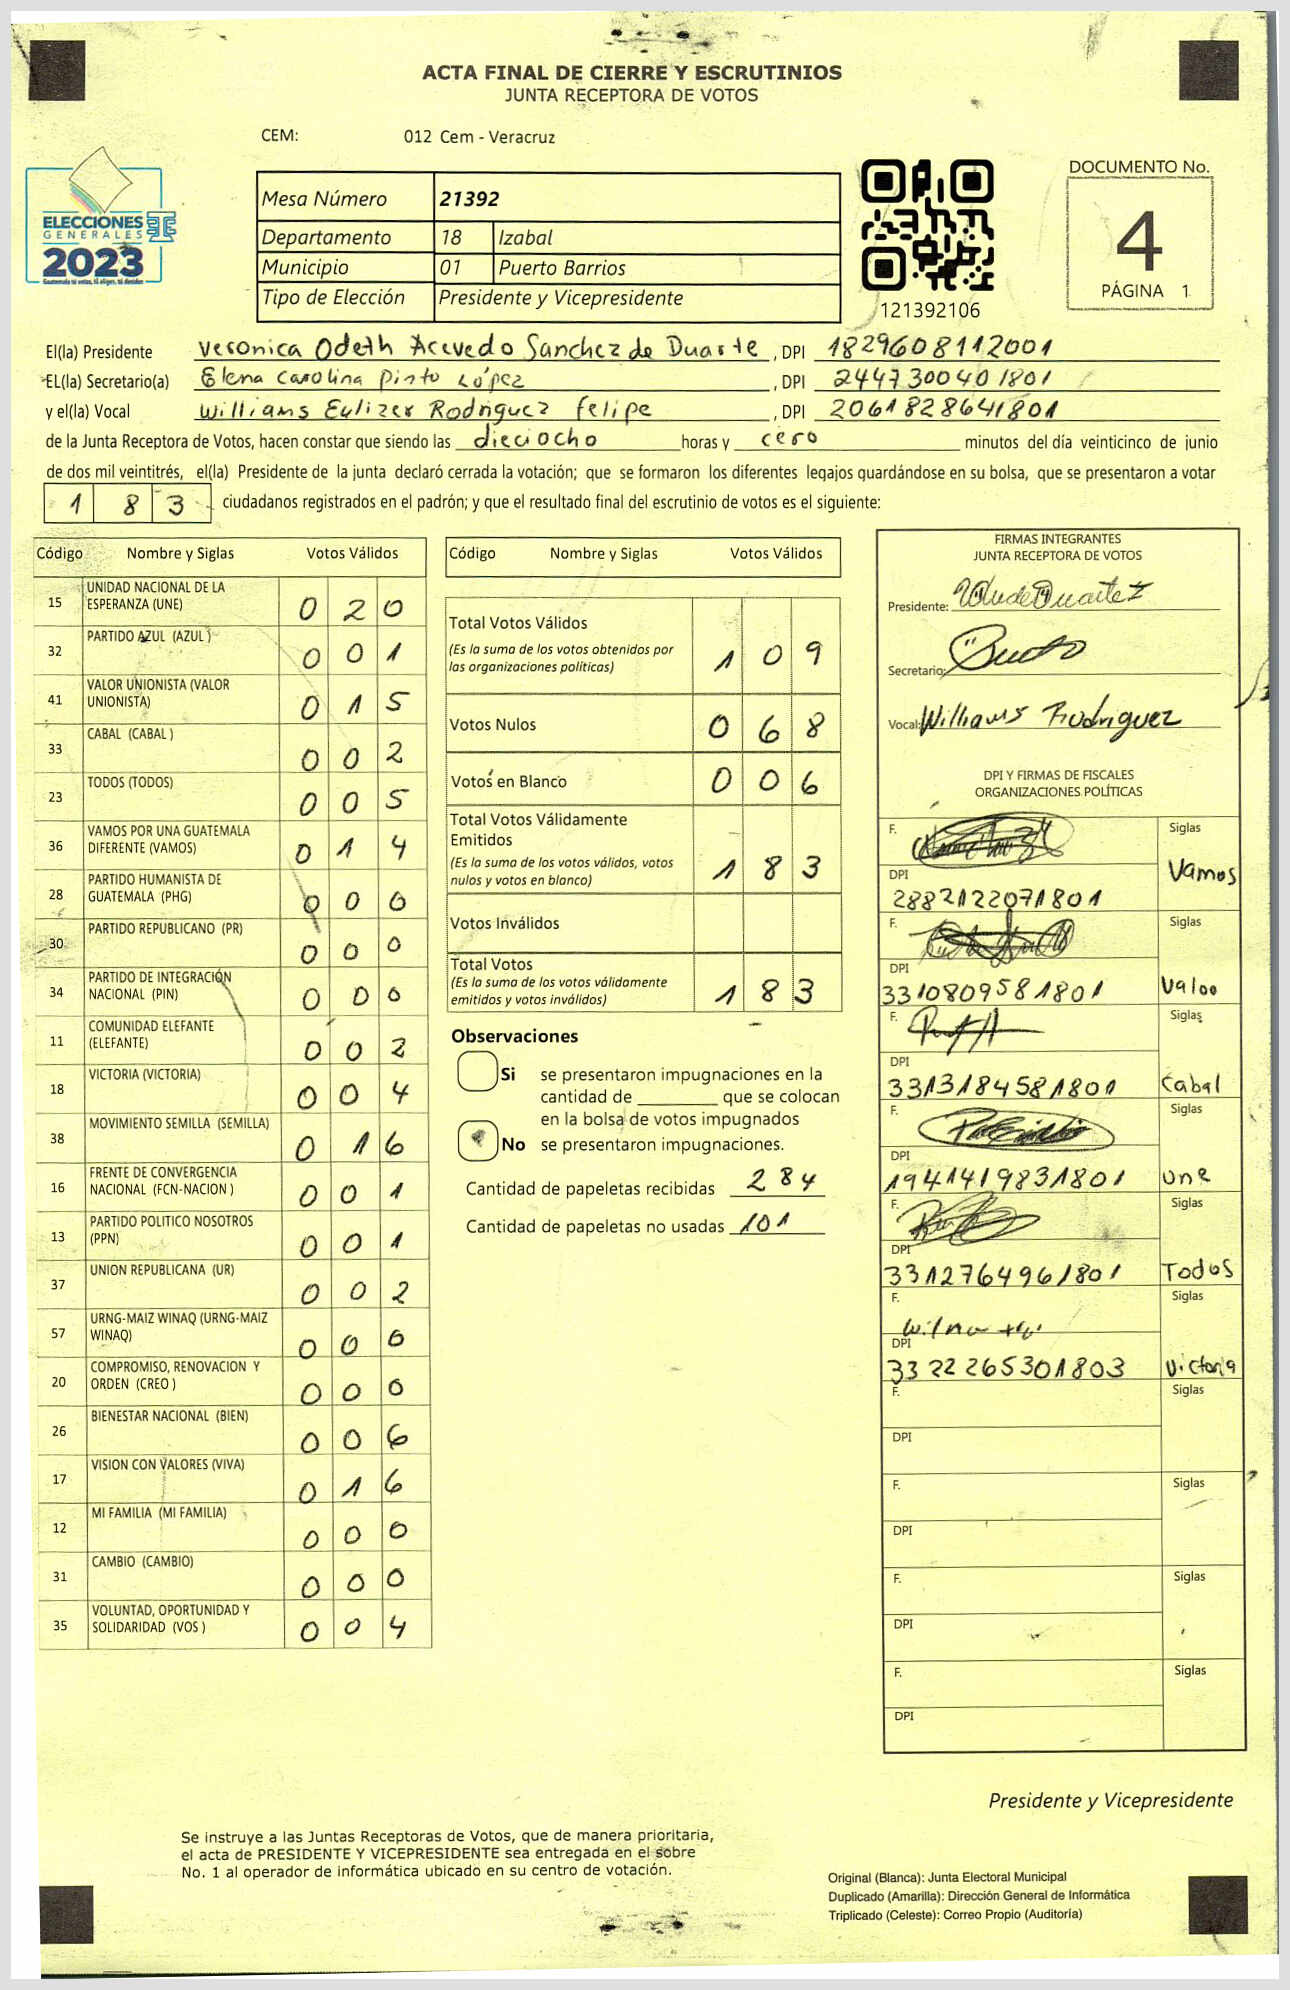 ACTA FINAL DE CIERRE Y ESCRUTINIOS
JUNTA RECEPTORA DE VOTOS
CEM: 012 Cem - Veracruz
ELECCIONES
GENERALES
2023
Guatemala tú votas, tú eliges, tú decides
Mesa Número 21392
Departamento 18 Izabal
Municipio 01 Puerto Barrios
Tipo de Elección Presidente y Vicepresidente
121392106
DOCUMENTO No.
4
PÁGINA 1
El(la) Presidente Veronica Odeth Acevedo Sanchez de Duarte, DPI 1829608112001
EL(la) Secretario(a) Elena Carolina Pinto López, DPI 2447300401801
y el(la) Vocal Williams Eulizer Rodriguez Felipe, DPI 2061828641801
de la Junta Receptora de Votos, hacen constar que siendo las dieciocho horas y cero minutos del día veinticinco de junio
de dos mil veintitrés, el(la) Presidente de la junta declaró cerrada la votación; que se formaron los diferentes legajos guardándose en su bolsa, que se presentaron a votar
1 8 3 ciudadanos registrados en el padrón; y que el resultado final del escrutinio de votos es el siguiente:
Código Nombre y Siglas Votos Válidos
15 UNIDAD NACIONAL DE LA ESPERANZA (UNE) 0 2 0
32 PARTIDO AZUL (AZUL ) 0 0 1
41 VALOR UNIONISTA (VALOR UNIONISTA) 0 1 5
33 CABAL (CABAL ) 0 0 2
23 TODOS (TODOS) 0 0 5
36 VAMOS POR UNA GUATEMALA DIFERENTE (VAMOS) 0 1 4
28 PARTIDO HUMANISTA DE GUATEMALA (PHG) 0 0 0
30 PARTIDO REPUBLICANO (PR) 0 0 0
34 PARTIDO DE INTEGRACIÓN NACIONAL (PIN) 0 0 0
11 COMUNIDAD ELEFANTE (ELEFANTE) 0 0 2
18 VICTORIA (VICTORIA) 0 0 4
38 MOVIMIENTO SEMILLA (SEMILLA) 0 1 6
16 FRENTE DE CONVERGENCIA NACIONAL (FCN-NACION ) 0 0 1
13 PARTIDO POLITICO NOSOTROS (PPN) 0 0 1
37 UNION REPUBLICANA (UR) 0 0 2
57 URNG-MAIZ WINAQ (URNG-MAIZ WINAQ) 0 0 0
20 COMPROMISO, RENOVACION Y ORDEN (CREO ) 0 0 0
26 BIENESTAR NACIONAL (BIEN) 0 0 6
17 VISION CON VALORES (VIVA) 0 1 6
12 MI FAMILIA (MI FAMILIA) 0 0 0
31 CAMBIO (CAMBIO) 0 0 0
35 VOLUNTAD, OPORTUNIDAD Y SOLIDARIDAD (VOS ) 0 0 4
Código Nombre y Siglas Votos Válidos
Total Votos Válidos 1 0 9
(Es la suma de los votos obtenidos por
las organizaciones políticas)
Votos Nulos 0 6 8
Votos en Blanco 0 0 6
Total Votos Válidamente
Emitidos 1 8 3
(Es la suma de los votos válidos, votos
nulos y votos en blanco)
Votos Inválidos
Total Votos 1 8 3
(Es la suma de los votos válidamente
emitidos y votos inválidos)
Observaciones
Si se presentaron impugnaciones en la
cantidad de ________ que se colocan
en la bolsa de votos impugnados
No se presentaron impugnaciones.
Cantidad de papeletas recibidas 284
Cantidad de papeletas no usadas 101
FIRMAS INTEGRANTES
JUNTA RECEPTORA DE VOTOS
Presidente:
Secretario:
Vocal: Williams Rodriguez
DPI Y FIRMAS DE FISCALES
ORGANIZACIONES POLÍTICAS
F. Siglas
DPI Vamos
2882122071801
F. Siglas
DPI
3310809581801 Valoo
F. Siglas
DPI
3313184581801 Cabal
F. Siglas
DPI
1941419831801 une
F. Siglas
DPI
3312764961801 Todos
F. Siglas
DPI
3322265301803 Victoria
F. Siglas
DPI
F. Siglas
DPI
F. Siglas
DPI
F. Siglas
DPI
Presidente y Vicepresidente
Se instruye a las Juntas Receptoras de Votos, que de manera prioritaria,
el acta de PRESIDENTE Y VICEPRESIDENTE sea entregada en el sobre
No. 1 al operador de informática ubicado en su centro de votación.
Original (Blanca): Junta Electoral Municipal
Duplicado (Amarilla): Dirección General de Informática
Triplicado (Celeste): Correo Propio (Auditoría)